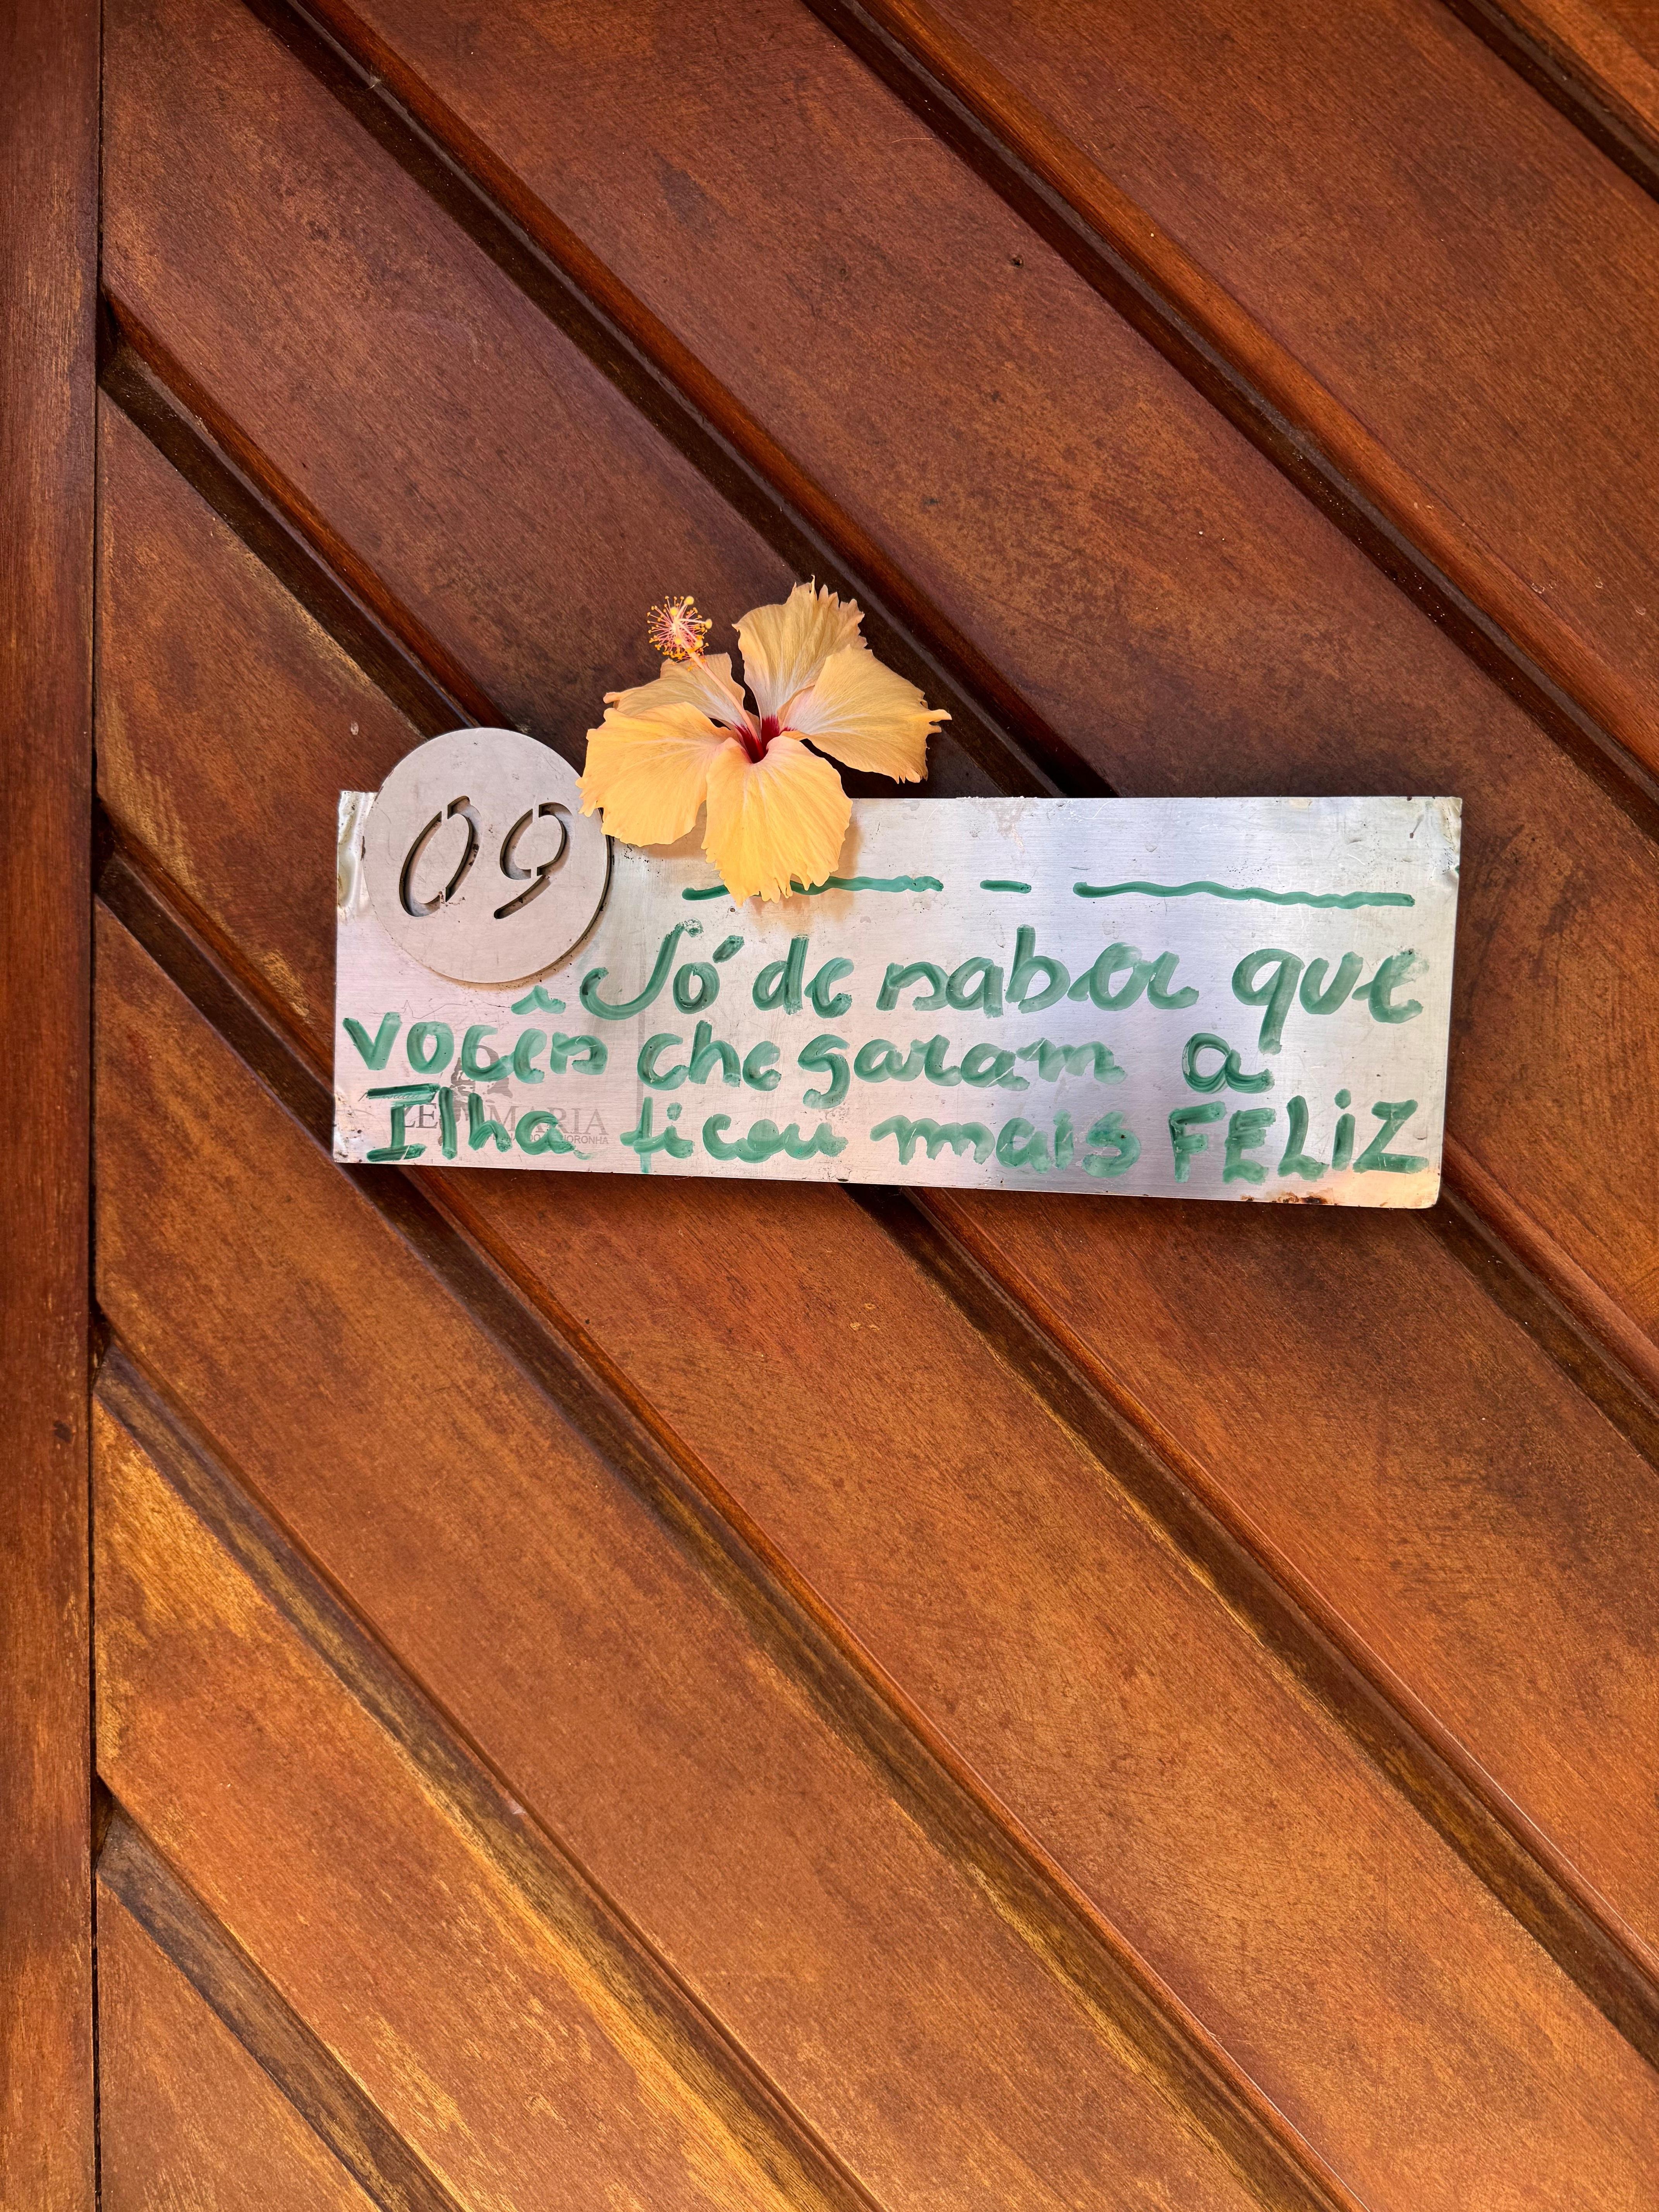 09
Só de saber que
vocês chegaram a
Ilha ficou mais FELiZ
ZÉ MARIA
NORONHA